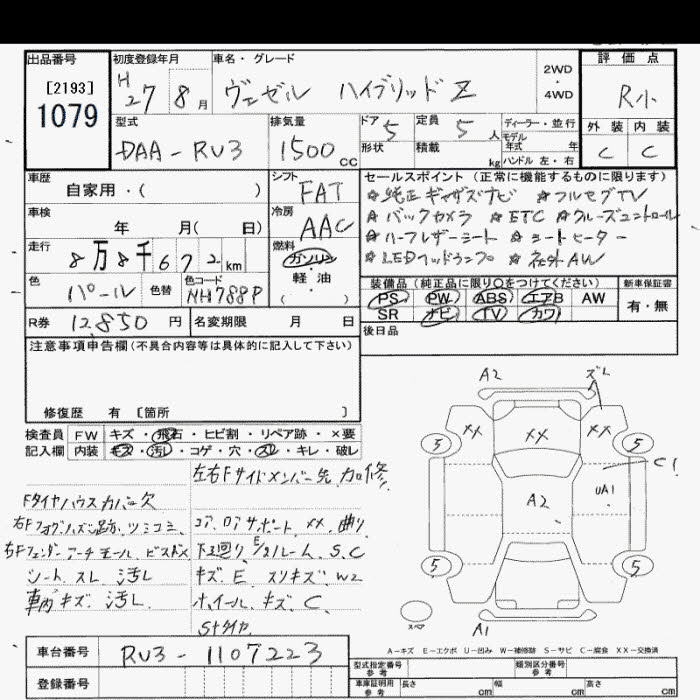 出品番号
[2193]
1079
初度登録年月
H 27年 8月
車名・グレード
ヴェゼル ハイブリッド Z
2WD
・
4WD
評価点
R小
外装 内装
C C
型式
DAA-RU3
排気量
1500 cc
ドア 5
形状
定員 5 人
積載 kg
ディーラー・並行
モデル年式 年
ハンドル 左・右
車歴
自家用・( )
シフト
FAT
車検
年 月( 日)
冷房
AAC
走行
8万8千672km
燃料
ガソリン
・
軽・油
( )
色
パール
色替
色コード
NH788P
R券 12,850 円
名変期限 月 日
セールスポイント (正常に機能するものに限ります)
☆純正ギャザズナビ ☆フルセグTV
☆バックカメラ ☆ETC ☆クルーズコントロール
☆ハーフレザーシート ☆シートヒーター
☆LEDヘッドランプ ☆社外AW
装備品 (純正品に限り○をつけてください)
PS PW ABS エアB AW
SR ナビ TV カワ
新車保証書
有・無
後日品
注意事項申告欄 (不具合内容等は具体的に記入して下さい)
修復歴 有 [箇所 ]
検査員記入欄
FW キズ・飛石・ヒビ割・リペア跡・×要
内装 キズ・汚レ・コゲ・穴・スレ・キレ・破レ
左右Fサイドメンバー先 加修
Fタイヤハウスカバー欠
右Fフォグハズレ跡、ツミコミ
コア、ロアサポート XX 曲り
右Fフェンダーアーチモール ビスドメ
下廻り E/gルーム S、C
シート スレ 汚レ
キズ、E スリキズ、W2
車内キズ、汚レ
ホイール、キズ、C
Sタイヤ
A2
ズレ
XX
XX
XX
5
5
C1
UA1
A2
5
5
スペア
A1
A−キズ E−エクボ U−凹み W−補修跡 S−サビ C−腐食 XX−交換済
車台番号
RU3-1107223
登録番号
型式指定番号
参考
類別区分番号
参考
車庫証明用
参考
長さ cm
幅 cm
高さ cm